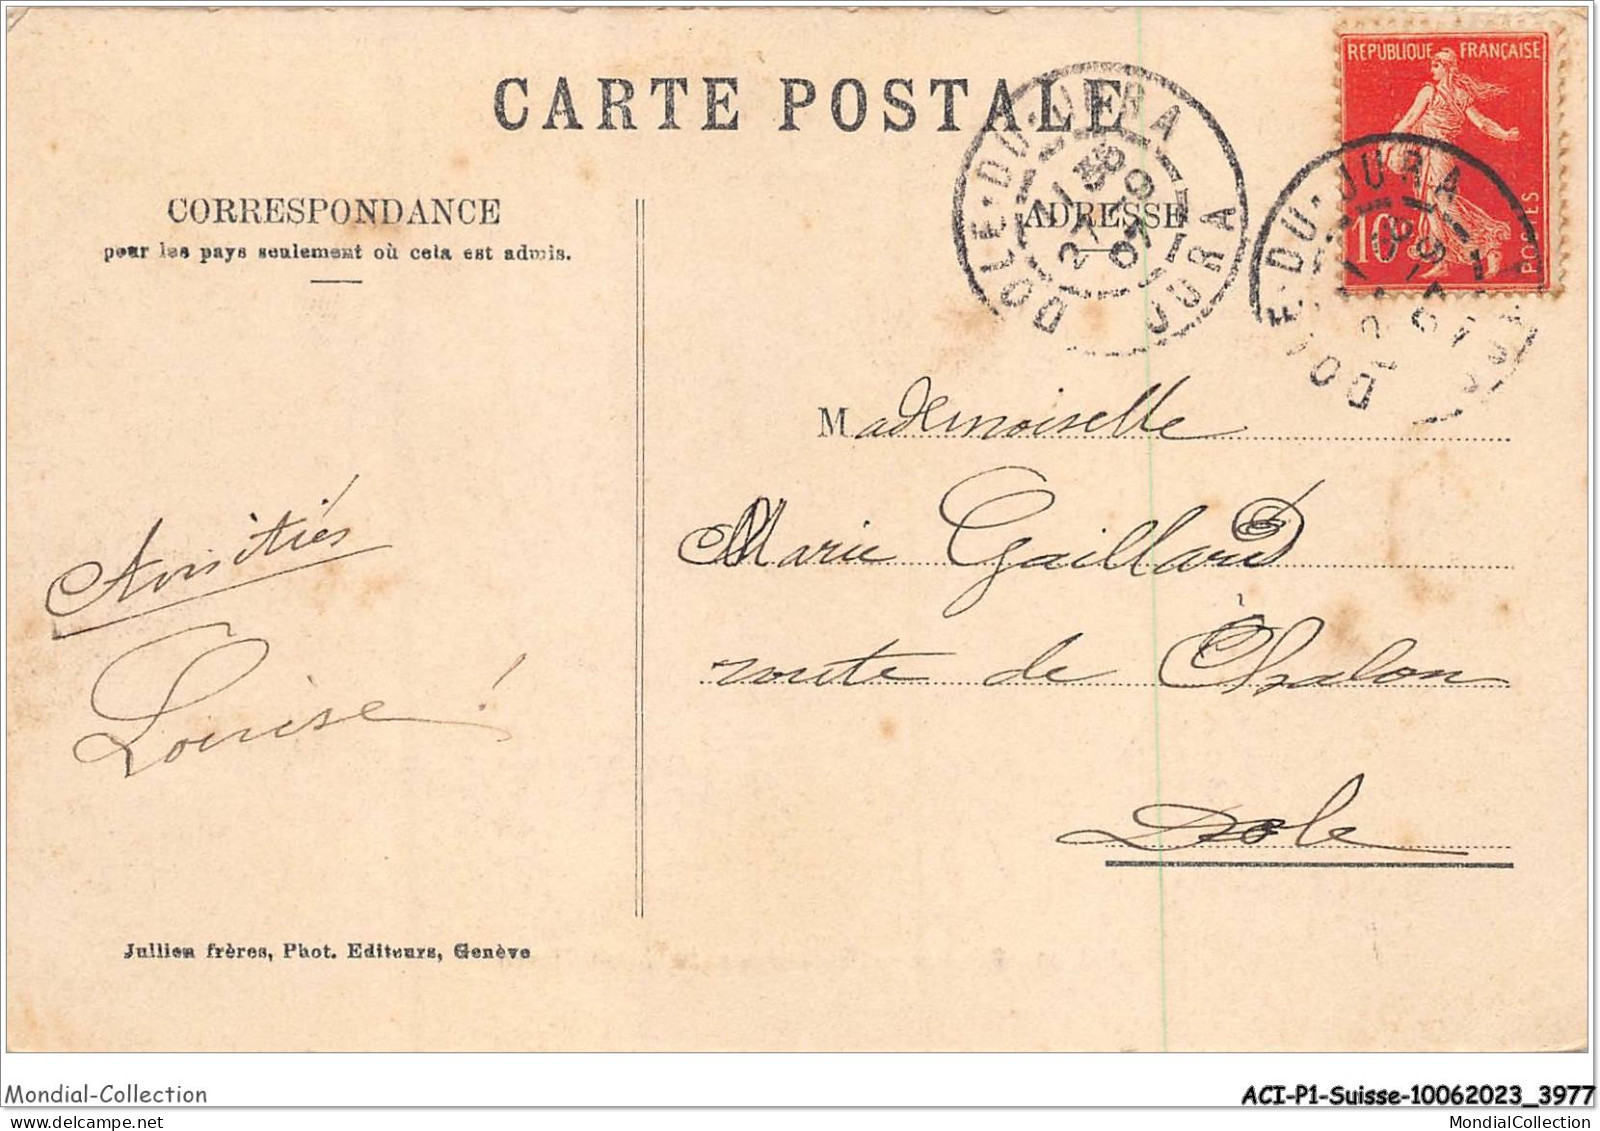 CARTE POSTALE
CORRESPONDANCE
pour les pays seulement où cela est admis.
ADRESSE
REPUBLIQUE FRANÇAISE
10
POSTES
DOLE-DU-JURA
JURA
27
07
DOLE-DU-JURA
Mademoiselle
Marie Gaillard
route de Chalon
Dole
Amitiés
Louise !
Jullien frères, Phot. Editeurs, Genève
Mondial-Collection
ACI-P1-Suisse-10062023_3977
MondialCollection